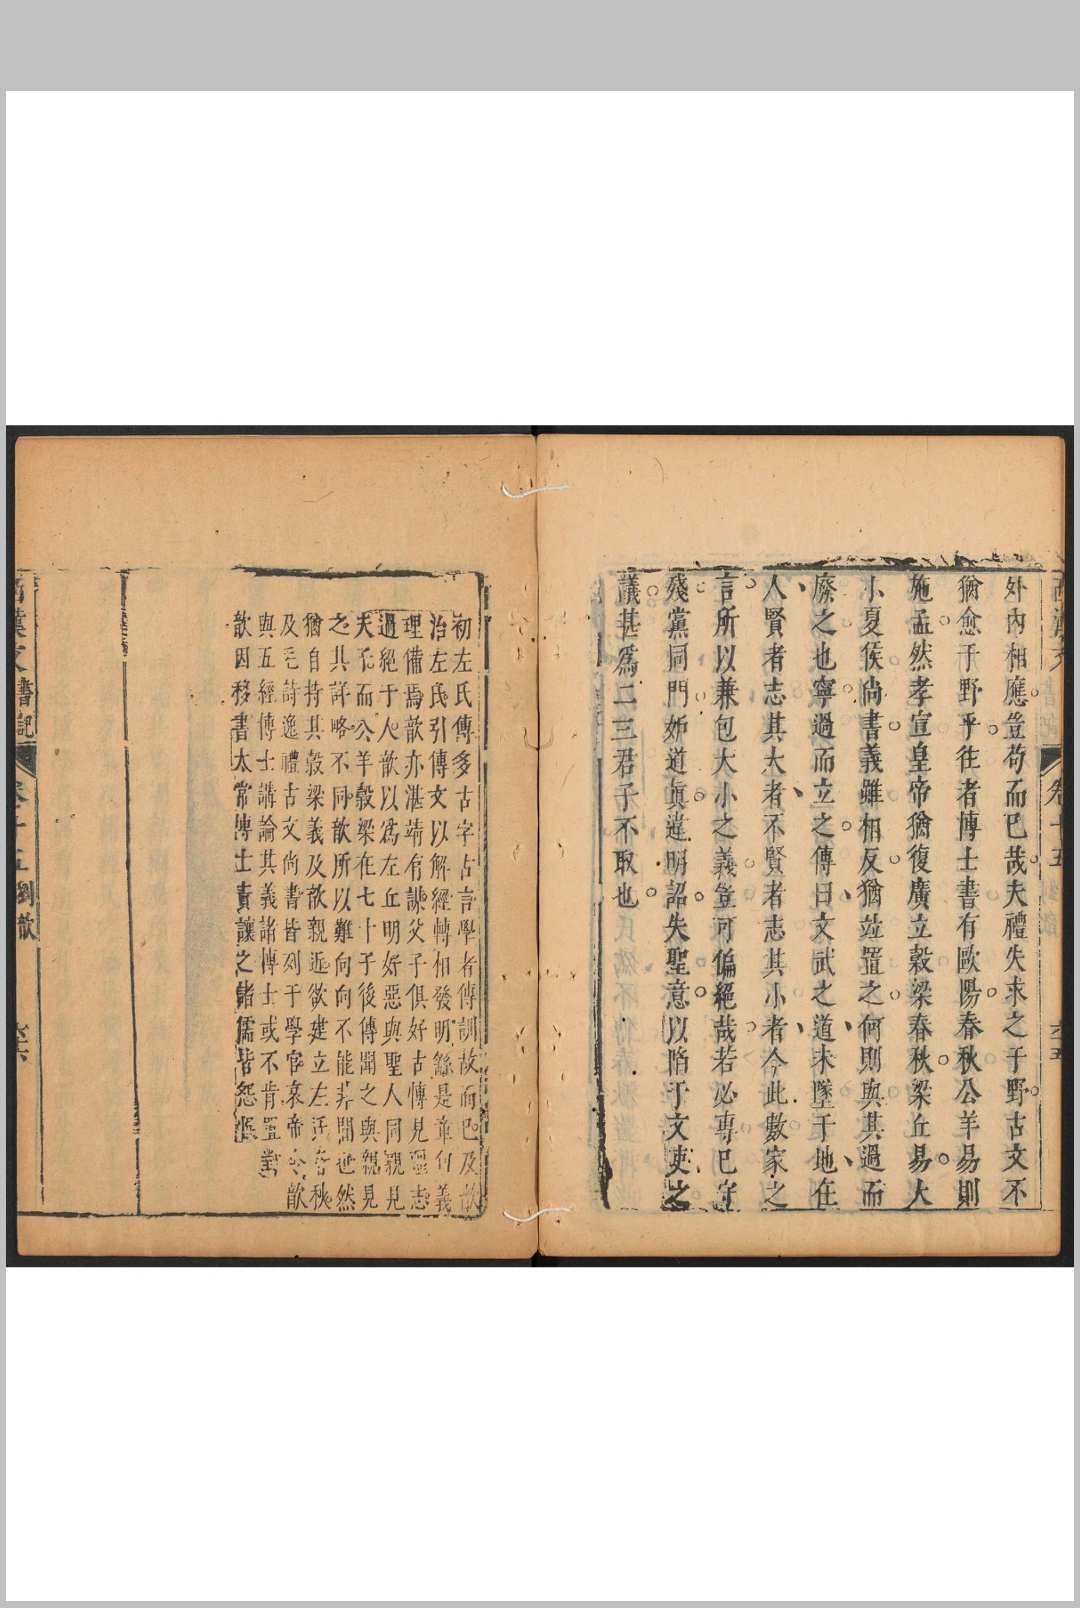 西漢文
卷十五
六十五
外內相應豈苟而已哉夫禮失求之于野古文不
猶愈于野乎往者博士書有歐陽春秋公羊易則
施孟然孝宣皇帝猶復廣立穀梁春秋梁丘易大
小夏侯尚書義雖相反猶竝置之何則與其過而
廢之也寧過而立之傳曰文武之道未墜于地在
人賢者志其大者不賢者志其小者今此數家之
言所以兼包大小之義豈可偏絕哉若必專已守
殘黨同門妒道眞違明詔失聖意以陷于文吏之
議甚爲二三君子不取也
初左氏傳多古字古言學者傳訓故而已及歆
治左氏引傳文以解經轉相發明繇是章句義
理備焉歆亦湛靖有謀父子俱好古博見彊志
過絕于人歆以爲左丘明好惡與聖人同親見
夫子而公羊穀梁在七十子後傳聞之與親見
之其詳略不同歆所以難向向不能非間也然
猶自持其穀梁義及歆親近欲建立左氏春秋
及毛詩逸禮古文尚書皆列于學官哀帝令歆
與五經博士講論其義諸博士或不肯置對
歆因移書太常博士責讓之諸儒皆怨恨
西漢文 書記
卷十五 劉歆
六十六